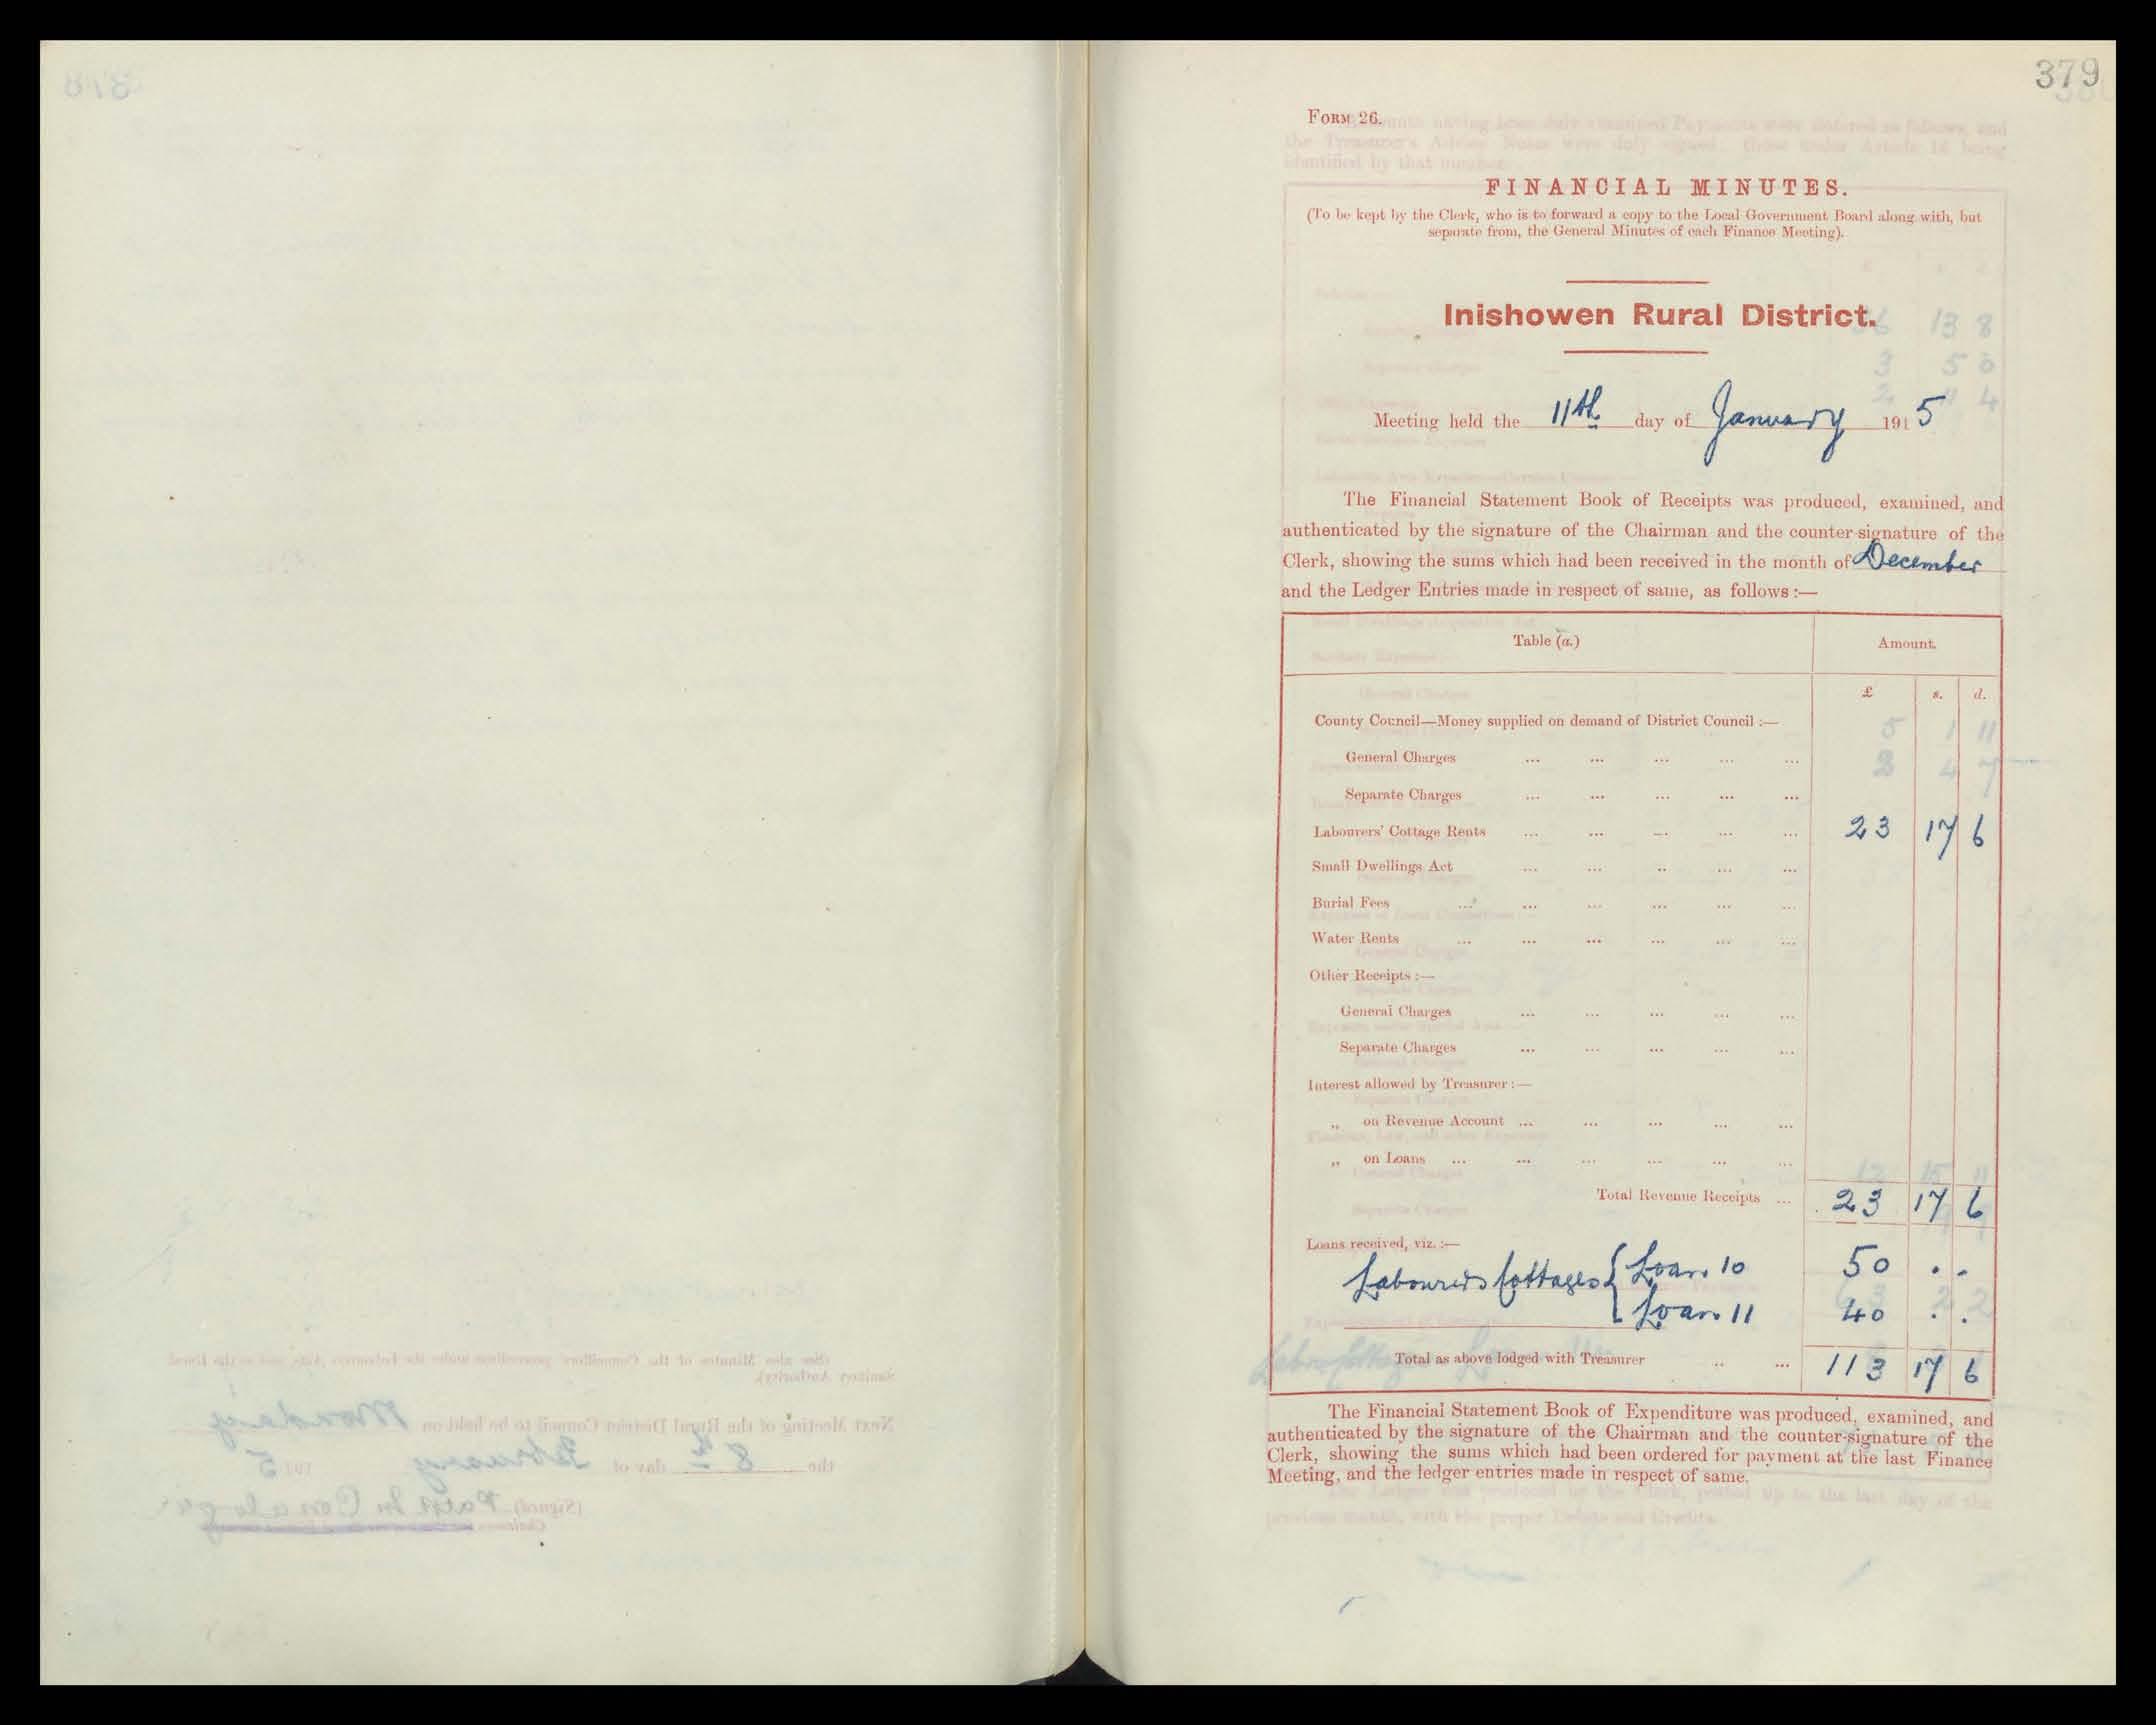 379
FORM 26.
FINANCIAL MINUTES.
(To be kept by the Clerk, who is to forward a copy to the Local Government Board along with, but
separate from, the General Minutes of each Finance Meeting).
Inishowen Rural District.
Meeting held the 11th day of January 1915
The Financial Statement Book of Receipts was produced, examined, and
authenticated by the signature of the Chairman and the counter-signature of the
Clerk, showing the sums which had been received in the month of December
and the Ledger Entries made in respect of same, as follows :—
Table (a.) Amount.
£ s. d.
County Council—Money supplied on demand of District Council :—
General Charges ... ... ... ... ...
Separate Charges ... ... ... ... ...
Labourers' Cottage Rents ... ... ... ... ... 23 17 6
Small Dwellings Act ... ... .. ... ...
Burial Fees ... ... ... ... ... ...
Water Rents ... ... ... ... ... ...
Other Receipts :—
General Charges ... ... ... ... ...
Separate Charges ... ... ... ... ...
Interest allowed by Treasurer :—
„ on Revenue Account ... ... ... ... ...
„ on Loans ... ... ... ... ... ...
Total Revenue Receipts ... 23 17 6
Loans received, viz. :—
Labourers Cottages { Loan 10 50 . .
Loan 11 40 . .
Total as above lodged with Treasurer .. ... 113 17 6
The Financial Statement Book of Expenditure was produced, examined, and
authenticated by the signature of the Chairman and the counter-signature of the
Clerk, showing the sums which had been ordered for payment at the last Finance
Meeting, and the ledger entries made in respect of same.